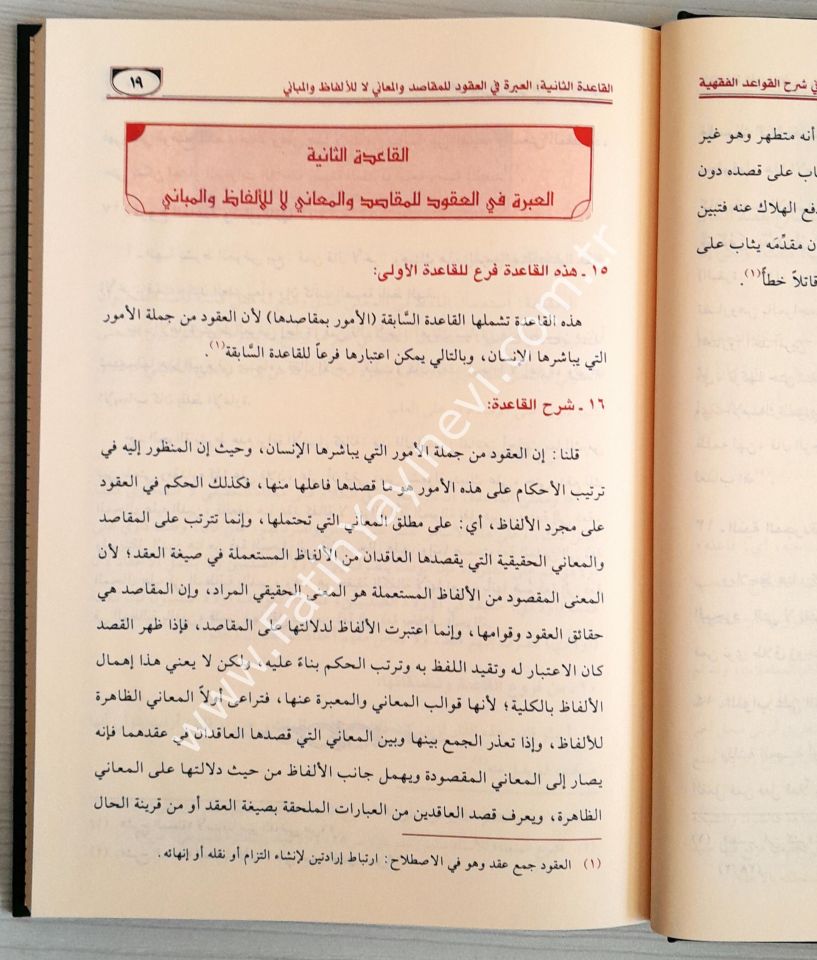 في شرح القواعد الفقهية
أنه متطهر وهو غير
على قصده دون
الهلاك عنه فتبين
مقدِّمَه يثاب على
قاتلاً خطأً(١).
القاعدة الثانية: العبرة في العقود للمقاصد والمعاني لا للألفاظ والمباني
١٩
القاعدة الثانية
العبرة في العقود للمقاصد والمعاني لا للألفاظ والمباني
١٥ ـ هذه القاعدة فرع للقاعدة الأولى:
هذه القاعدة تشملها القاعدة السَّابقة (الأمور بمقاصدها) لأن العقود من جملة الأمور
التي يباشرها الإنسان، وبالتالي يمكن اعتبارها فرعاً للقاعدة السَّابقة(١).
١٦ ـ شرح القاعدة:
قلنا: إن العقود من جملة الأمور التي يباشرها الإنسان، وحيث إن المنظور إليه في
ترتيب الأحكام على هذه الأمور هو ما قصدها فاعلها منها، فكذلك الحكم في العقود
على مجرد الألفاظ، أي: على مطلق المعاني التي تحتملها، وإنما تترتب على المقاصد
والمعاني الحقيقية التي يقصدها العاقدان من الألفاظ المستعملة في صيغة العقد؛ لأن
المعنى المقصود من الألفاظ المستعملة هو المعنى الحقيقي المراد، وإن المقاصد هي
حقائق العقود وقوامها، وإنما اعتبرت الألفاظ لدلالتها على المقاصد، فإذا ظهر القصد
كان الاعتبار له وتقيد اللفظ به وترتب الحكم بناءً عليه، ولكن لا يعني هذا إهمال
الألفاظ بالكلية؛ لأنها قوالب المعاني والمعبرة عنها، فتراعى أولاً المعاني الظاهرة
للألفاظ، وإذا تعذر الجمع بينها وبين المعاني التي قصدها العاقدان في عقدهما فإنه
يصار إلى المعاني المقصودة ويهمل جانب الألفاظ من حيث دلالتها على المعاني
الظاهرة، ويعرف قصد العاقدين من العبارات الملحقة بصيغة العقد أو من قرينة الحال
(١) العقود جمع عقد وهو في الاصطلاح: ارتباط إرادتين لإنشاء التزام أو نقله أو إنهائه.
www.FatihYayinevi.com.tr